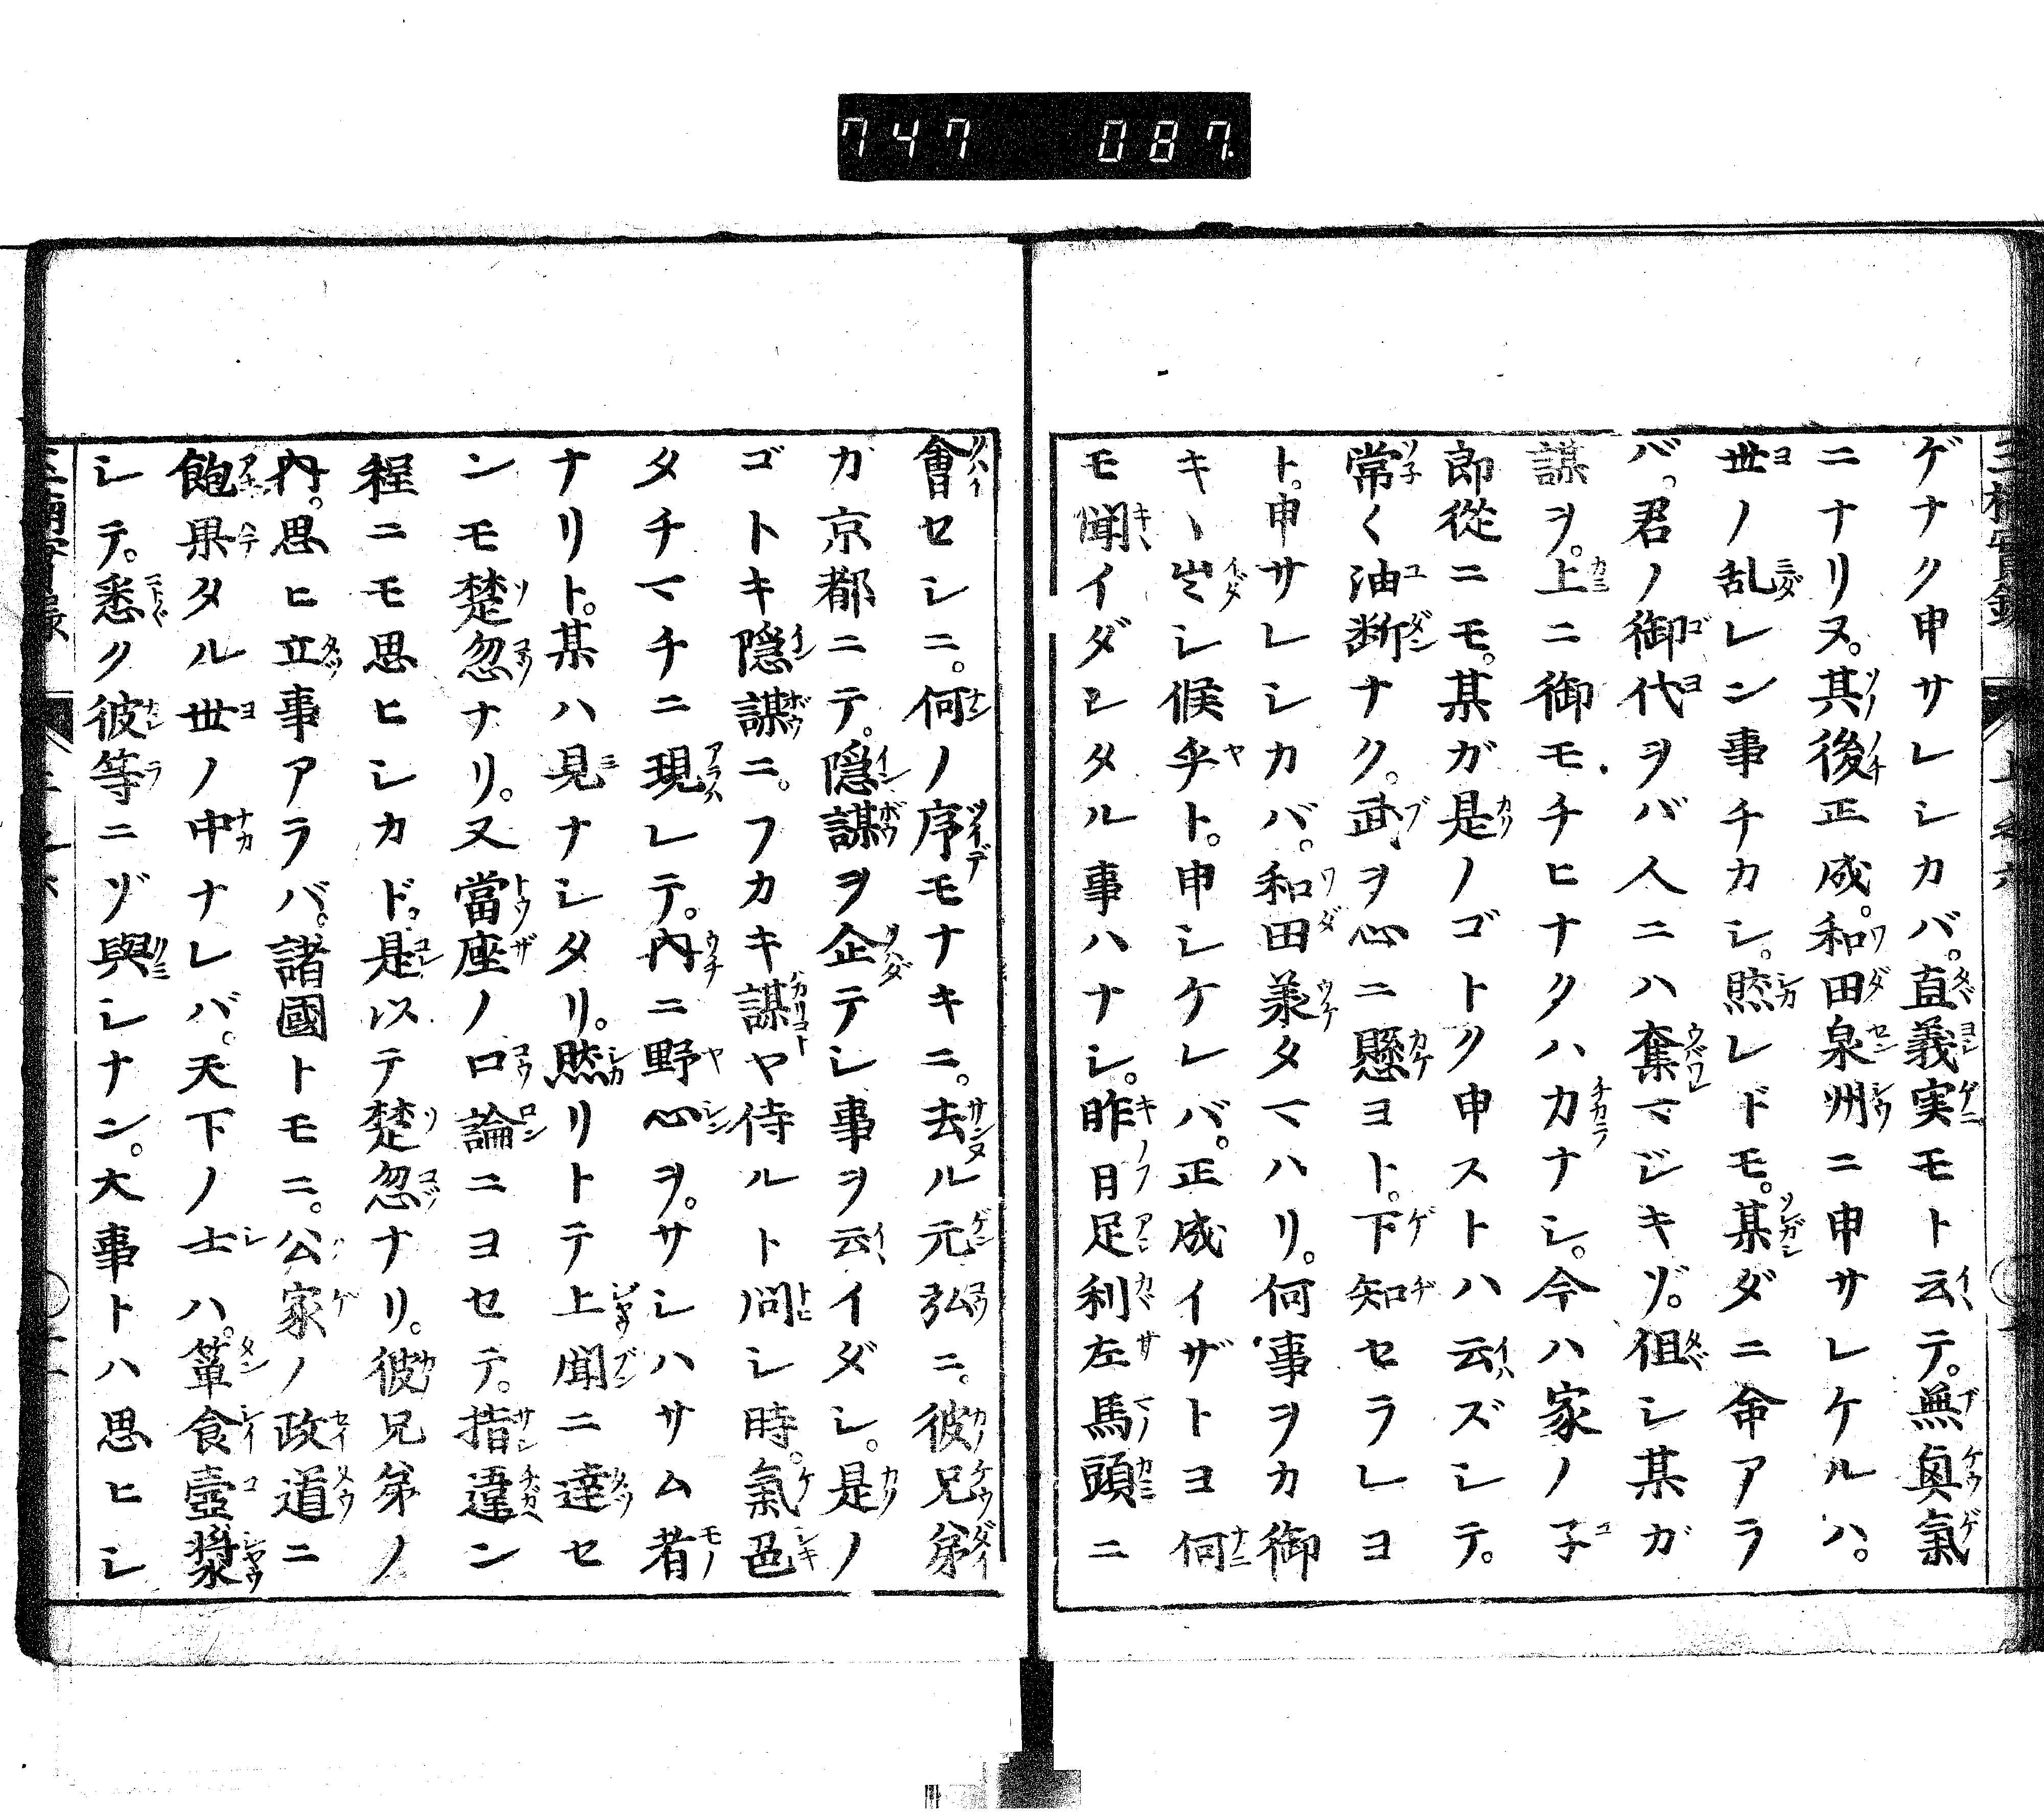 747 087.
ゲナク申サレシカバ。直義実モト云テ。無興氣
ニナリヌ。其後正成。和田泉州ニ申サレケルハ。
世ノ乱レン事チカシ。然レドモ。某ダニ命アラ
バ。君ノ御代ヲバ人ニハ奪マジキゾ。但シ某ガ
謀ヲ。上ニ御モチヒナクハカナシ。今ハ家ノ子
郎從ニモ。某ガ是ノゴトク申ストハ云ズシテ。
常〱油断ナク。武ヲ心ニ懸ヨト。下知セラレヨ
ト。申サレシカバ。和田羕タマハリ。何事ヲカ御
キヽ出シ候乎ト。申シケレバ。正成イザトヨ何
モ聞イダシタル事ハナシ。昨日足利左馬頭ニ
會セシニ。何ノ序モナキニ。去ル元弘ニ。彼兄弟
ガ京都ニテ。隠謀ヲ企テシ事ヲ云イダシ。是ノ
ゴトキ隠謀ニ。フカキ謀ヤ侍ルト問シ時。氣色
タチマチニ現レテ。内ニ野心ヲ。サシハサム者
ナリト。某ハ見ナシタリ。然リトテ上聞ニ達セ
ンモ楚忽ナリ。又當座ノ口論ニヨセテ。指違ン
程ニモ思ヒシカド。是以テ楚忽ナリ。彼兄弟ノ
内。思ヒ立事アラバ。諸國トモニ。公家ノ政道ニ
飽果タル世ノ中ナレバ。天下ノ士ハ。簞食壺漿
シテ。悉ク彼等ニゾ與シナン。大事トハ思ヒシ